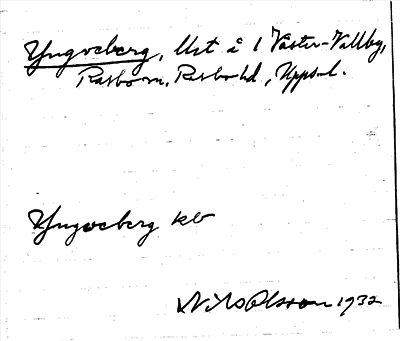 Yngveberg, Ust å 1 Väster-Vallby,
Rasbo sn, Rasbo hd, Upps. l.
Yngveberg kb
Nils Olsson 1932